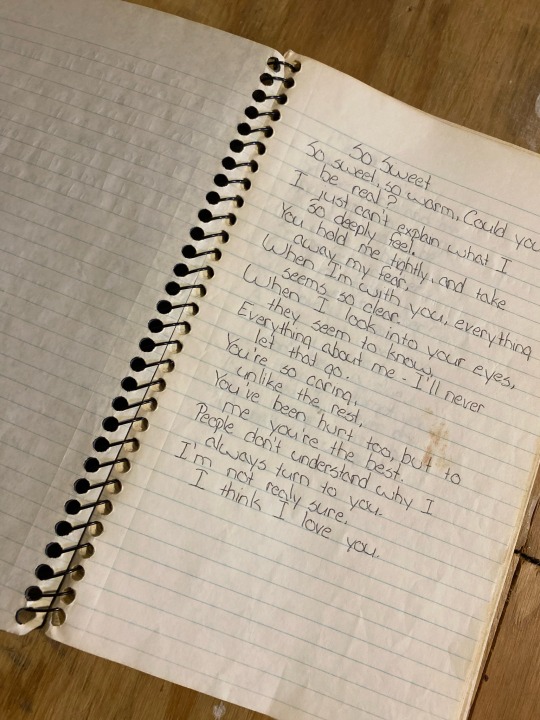 So Sweet
So sweet, so warm, Could you
be real?
I just can't explain what I
so deeply feel.
You hold me tightly, and take
away my fear.
When I'm with you, everything
seems so clear.
When I look into your eyes,
they seem to know,
Everything about me - I'll never
let that go.
You're so caring,
unlike the rest,
You've been hurt too, but to
me you're the best.
People don't understand why I
always turn to you.
I'm not really sure,
I think I love you.